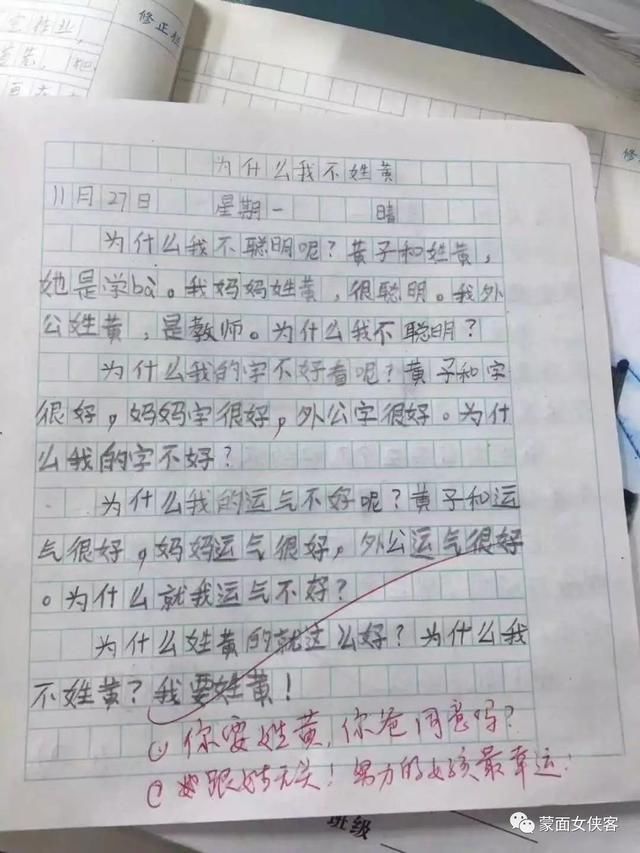 修正栏
为什么我不姓黄
11月27日 星期一 晴
为什么我不聪明呢？黄子和姓黄，
她是学bà。我妈妈姓黄，很聪明。我外
公姓黄，是教师。为什么我不聪明？
为什么我的字不好看呢？黄子和字
很好，妈妈字很好，外公字很好。为什
么我的字不好？
为什么我的运气不好呢？黄子和运
气很好，妈妈运气很好，外公运气很好
。为什么就我运气不好？
为什么姓黄的就这么好？为什么我
不姓黄？我要姓黄！
你要姓黄，你爸同意吗？
跟姓无关！努力的女孩最幸运！
班级
蒙面女侠客